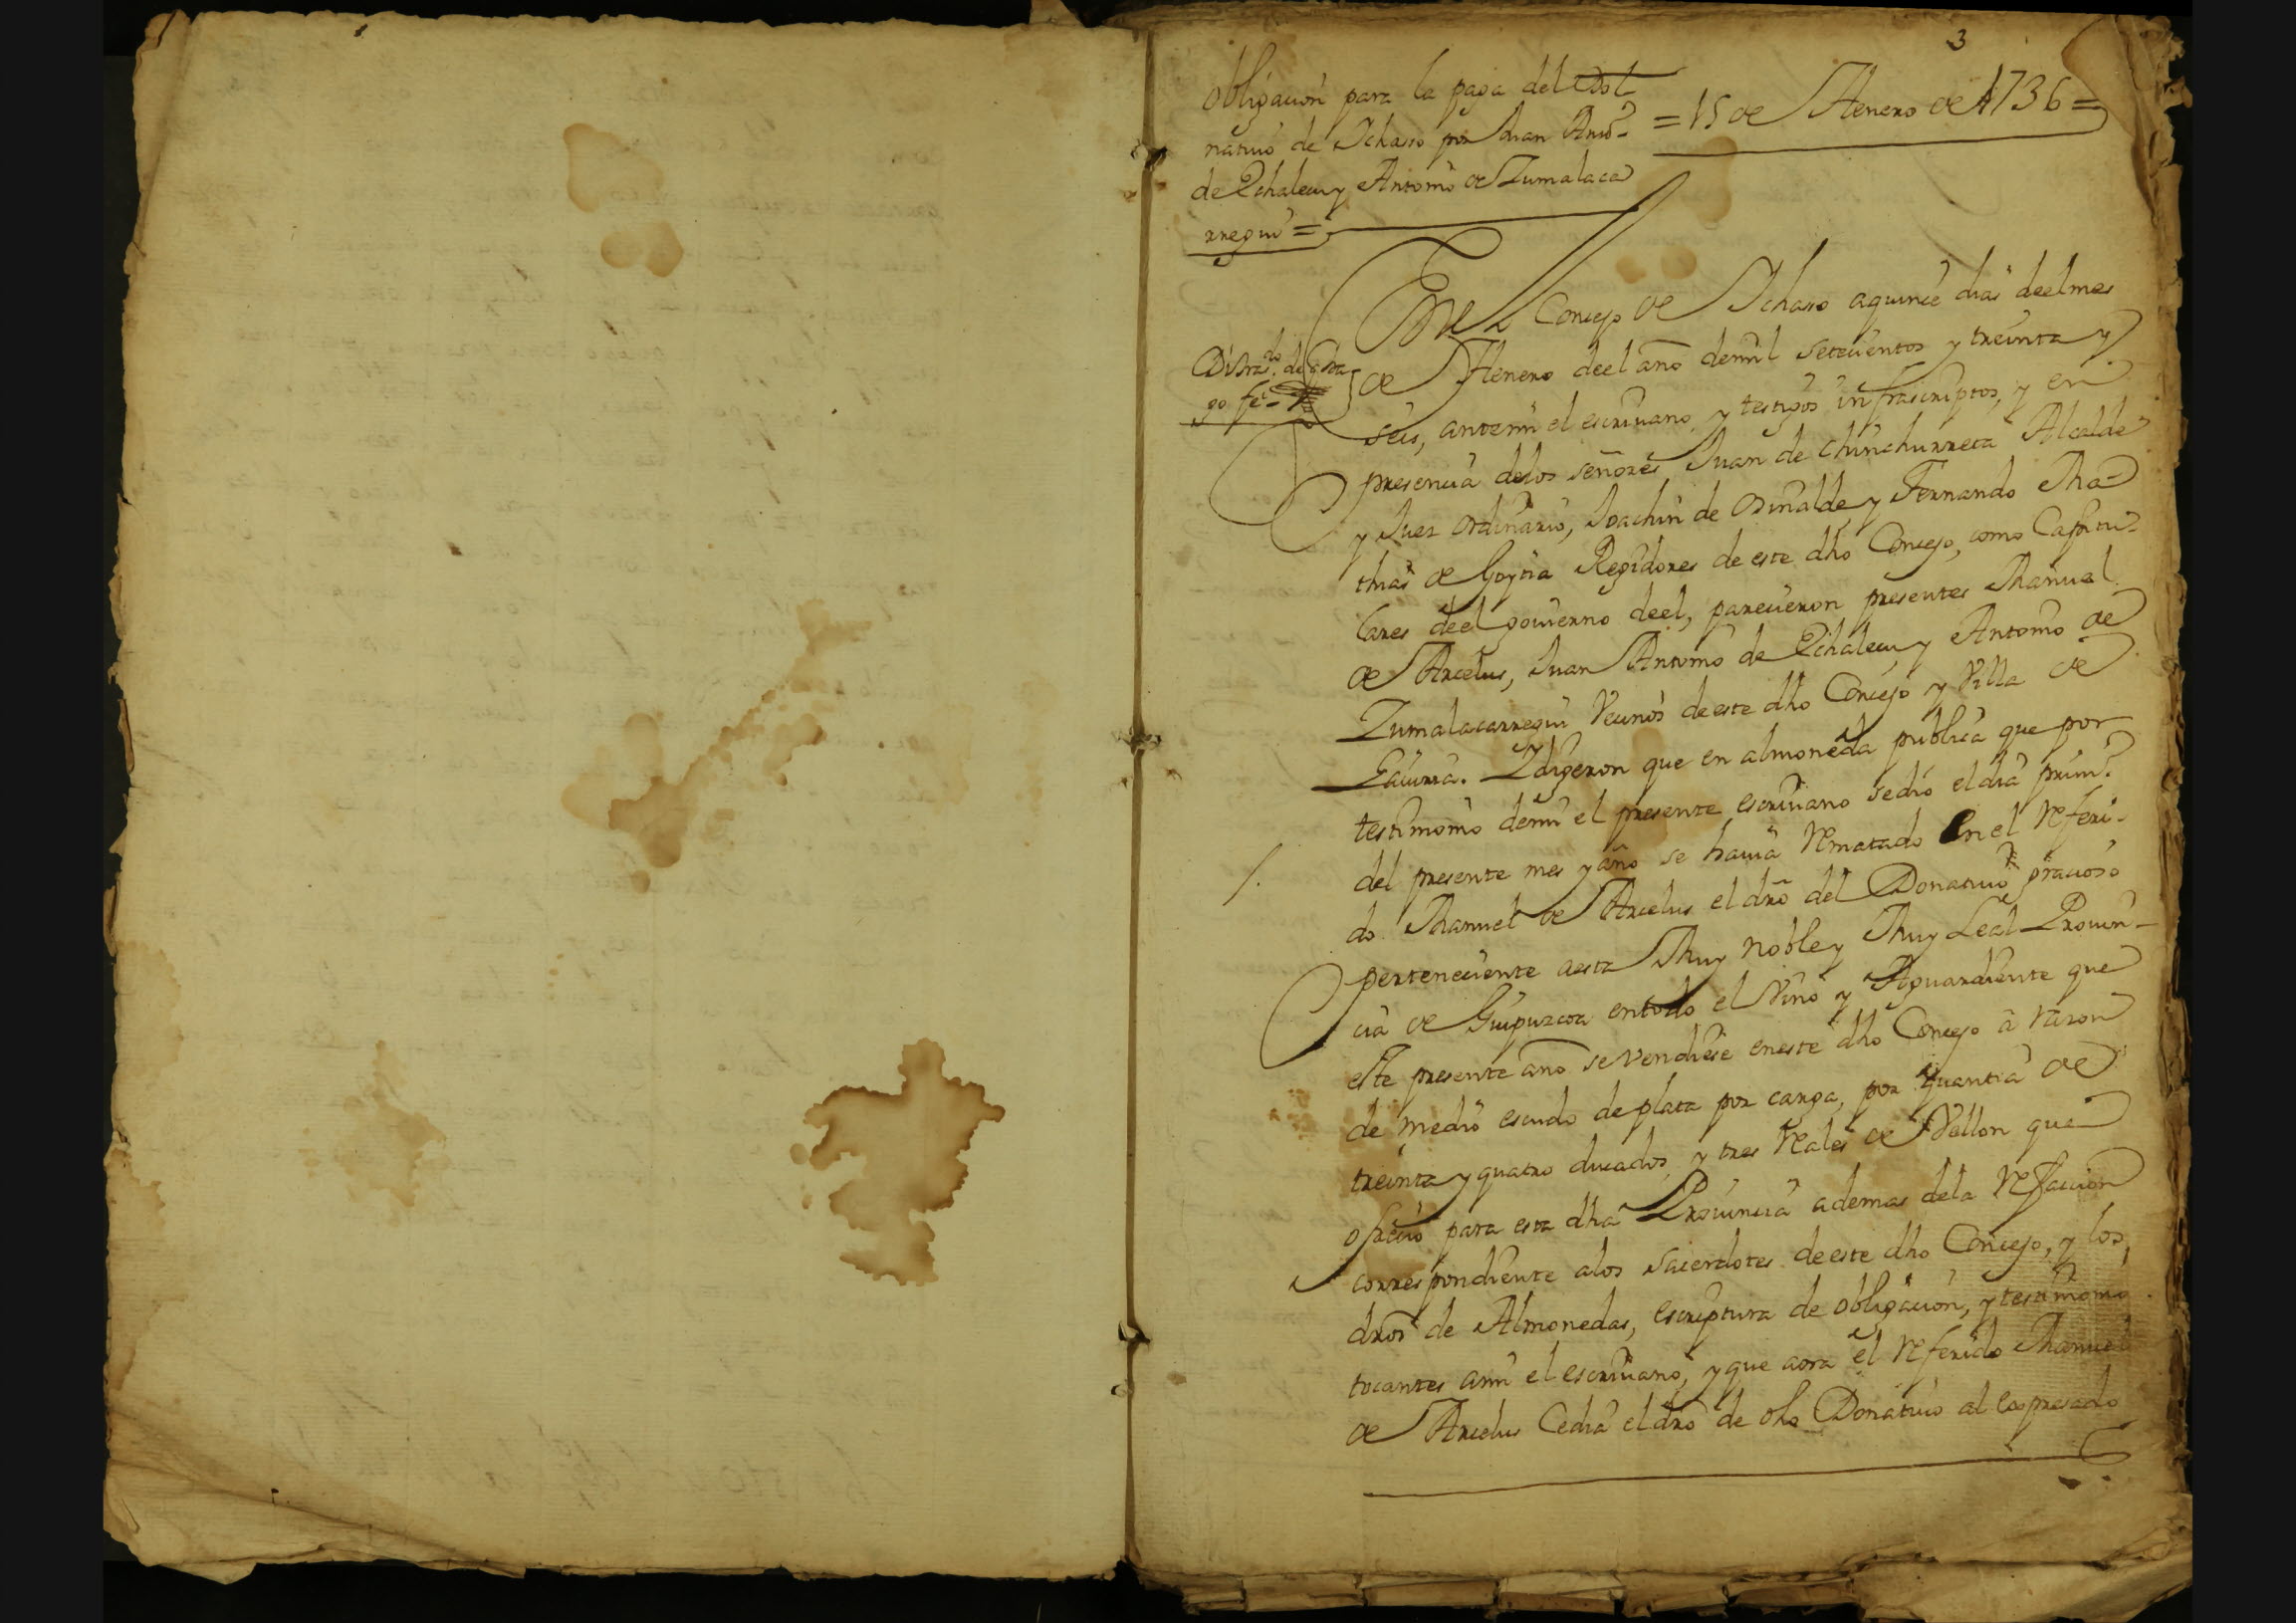 3
Obligacion para la paga del Do-
natiuo de Ichaso por Juan Anto-
de Echalecu y Antonio de Zumalaca
rregui =
= 15 de Henero de 1736 =
En el Concejo de Ichaso a quince dias deel mes
de Henero deel año demil setecientos y treinta y
seis, antemi el escriuano, y testigos infrascriptos, y en
presencia delos señores Juan de Chinchurreta Alcalde
y Juez ordinario, Joachin de Osinalde y Fernando Ma-
thias de Goytia Regidores de este dho Concejo, como Capitu-
lares deel gouierno deel, parecieron presentes Manuel
de Arcelus, Juan Antonio de Echalecu y Antonio de
Zumalacarregui Vecinos de este dho Concejo y Villa de
Lacurra. Y digeron que en almoneda publica que por
testimonio demi el presente escriuano sedió el dia prim.º
del presente mes y año se hauia rematado en el referi-
do Manuel de Arcelus el dro del Donatiuo gracioso
perteneciente aesta Muy noble y Muy Leal Prouin-
cia de Guipuzcoa entodo el Vino y Aguardiente que
este presente año se vendiese eneste dho Concejo â razon
de medio escudo de plata por carga, por quantia de
treinta y quatro ducados, y tres reales de Vellon que
ofrecio para esta dha Prouincia ademas dela refaccion
correspondiente alos sacerdotes de este dho Concejo, y los
dros de Almonedas, escriptura de obligacion, y testimonio
tocantes ami el escriuano, y que aora el referido Manuel
de Arcelus Cedia el dro de dho Donatiuo al expresado